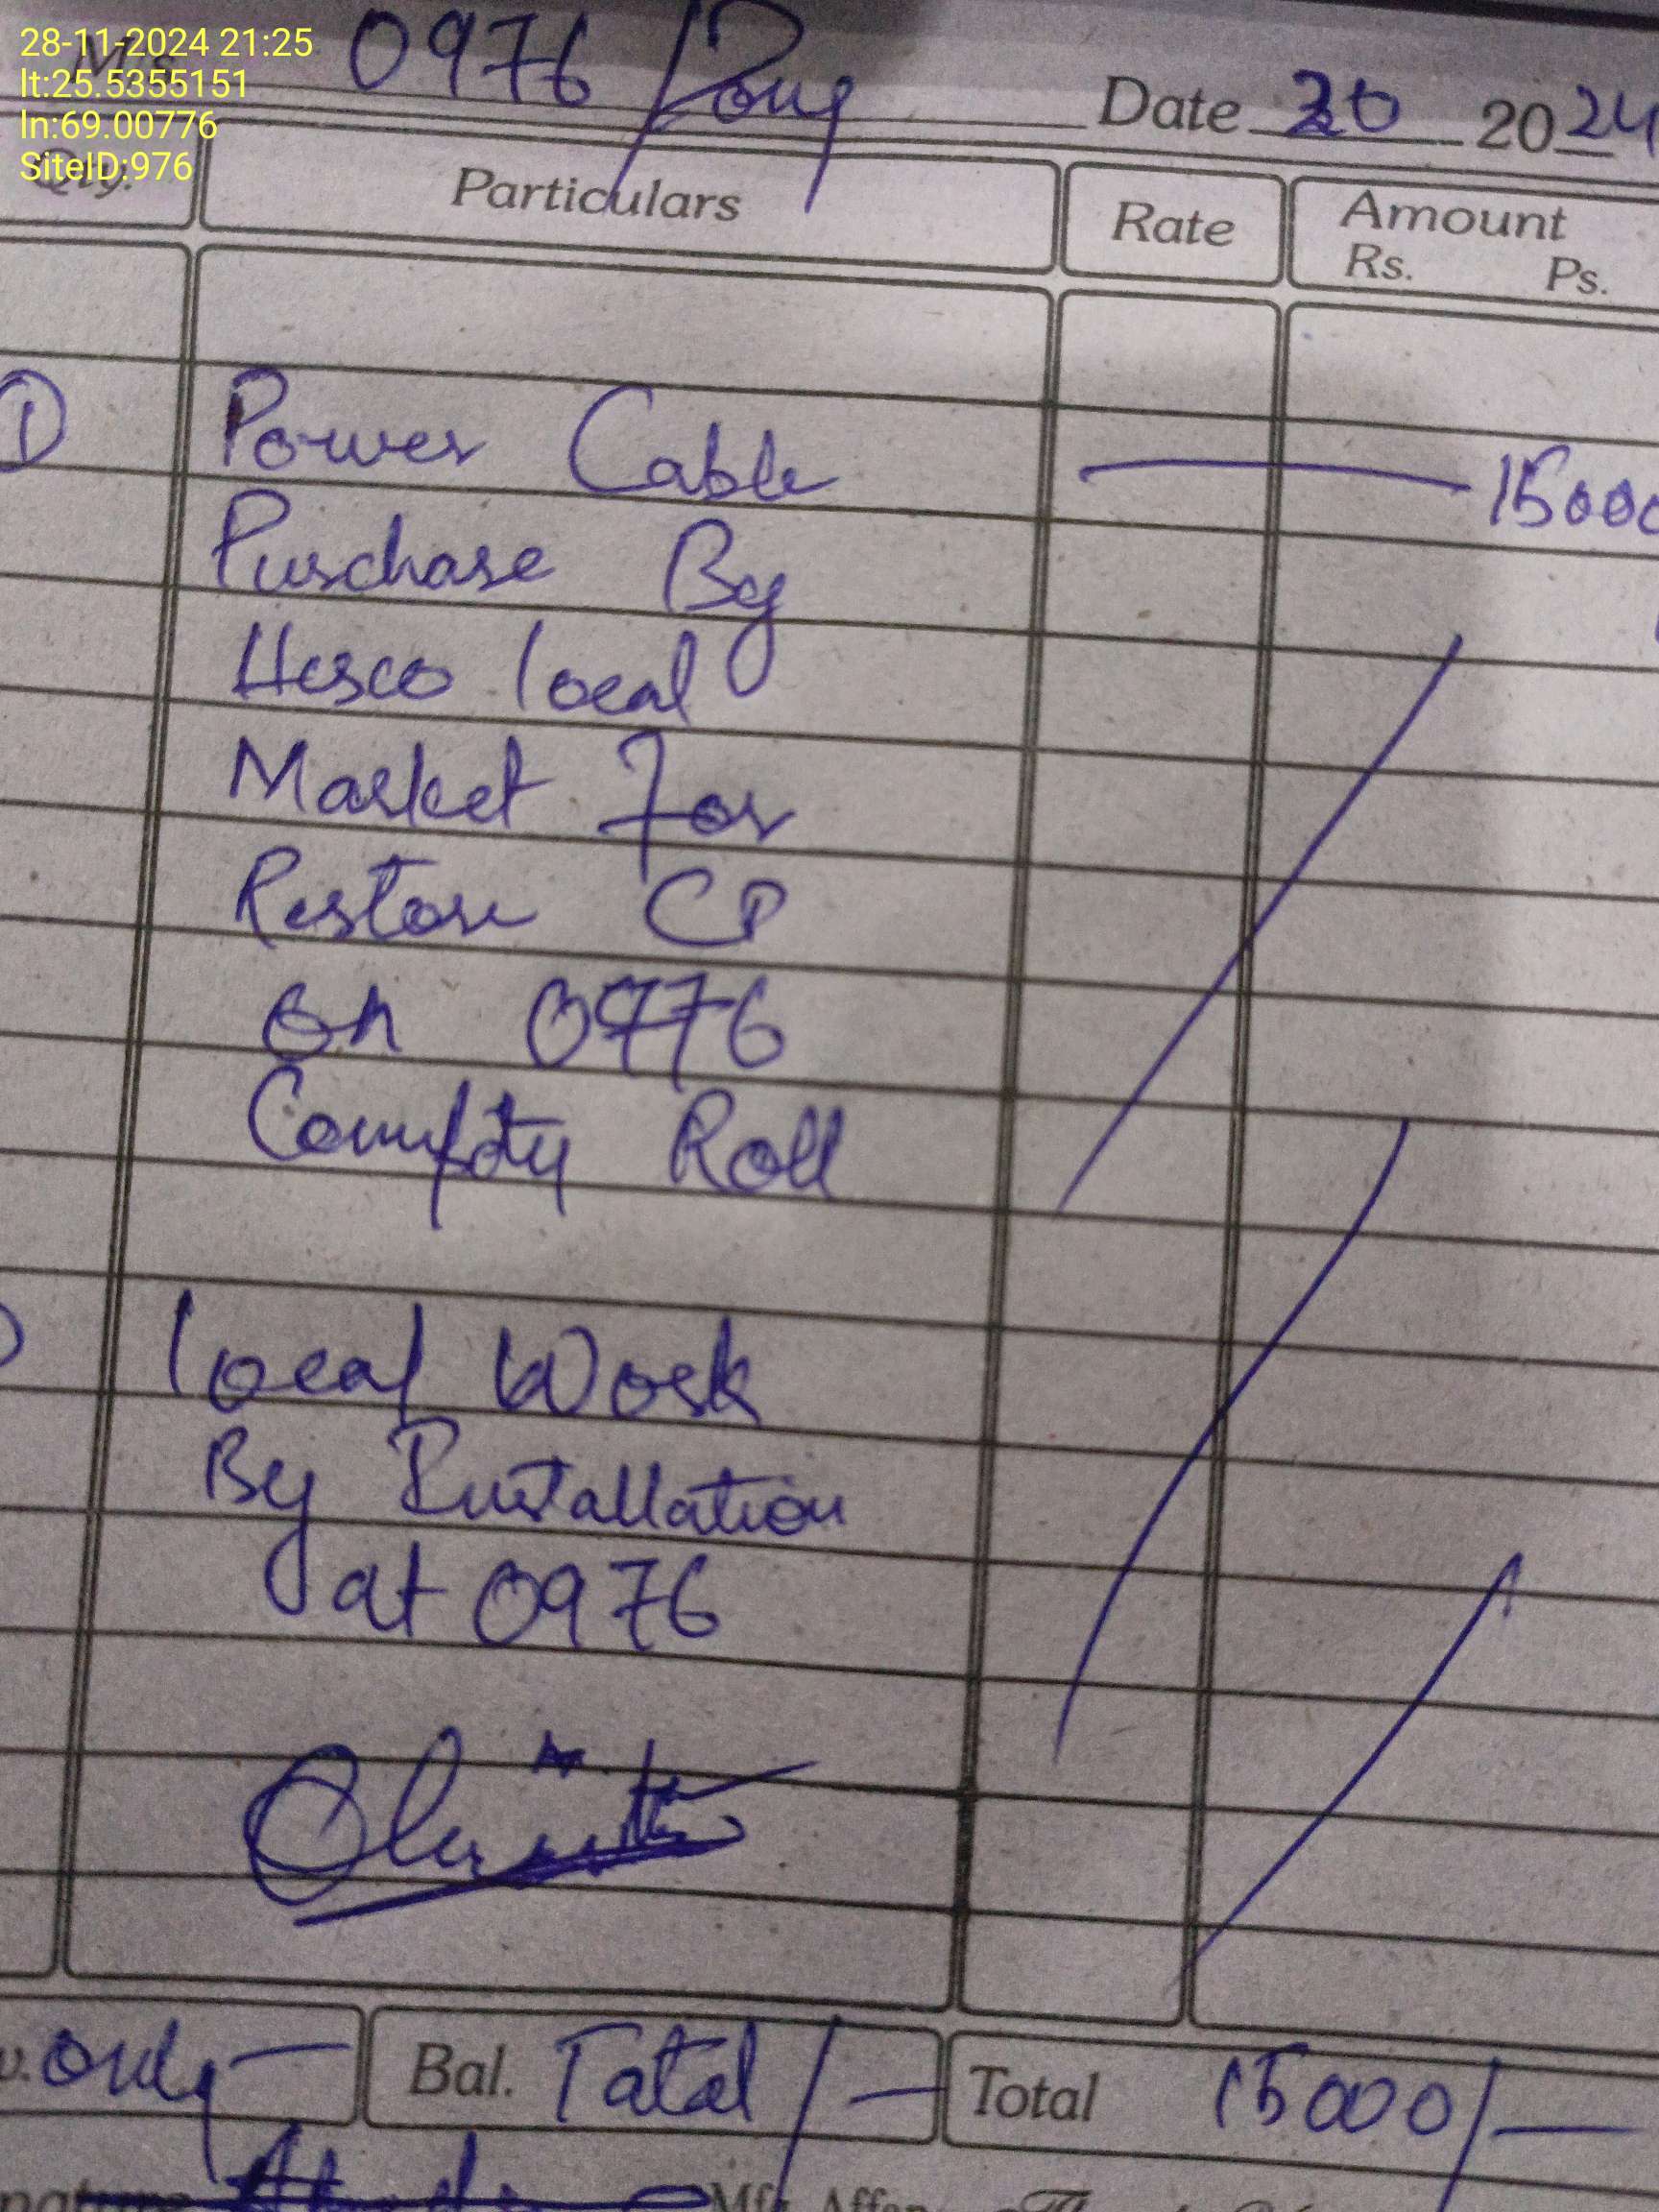 28-11-2024 21:25
lt:25.5355151
ln:69.00776
SiteID:976
M/s 0976 /
Date 20 2024
Qty. Particulars Rate Amount
Rs. Ps.
1 Power Cable 15000
Purchase By
Hesco local
Market For
Restore CP
on 0976
Roll
local Work
By Installation
at 0976
only Bal. Total /- Total 15000/-